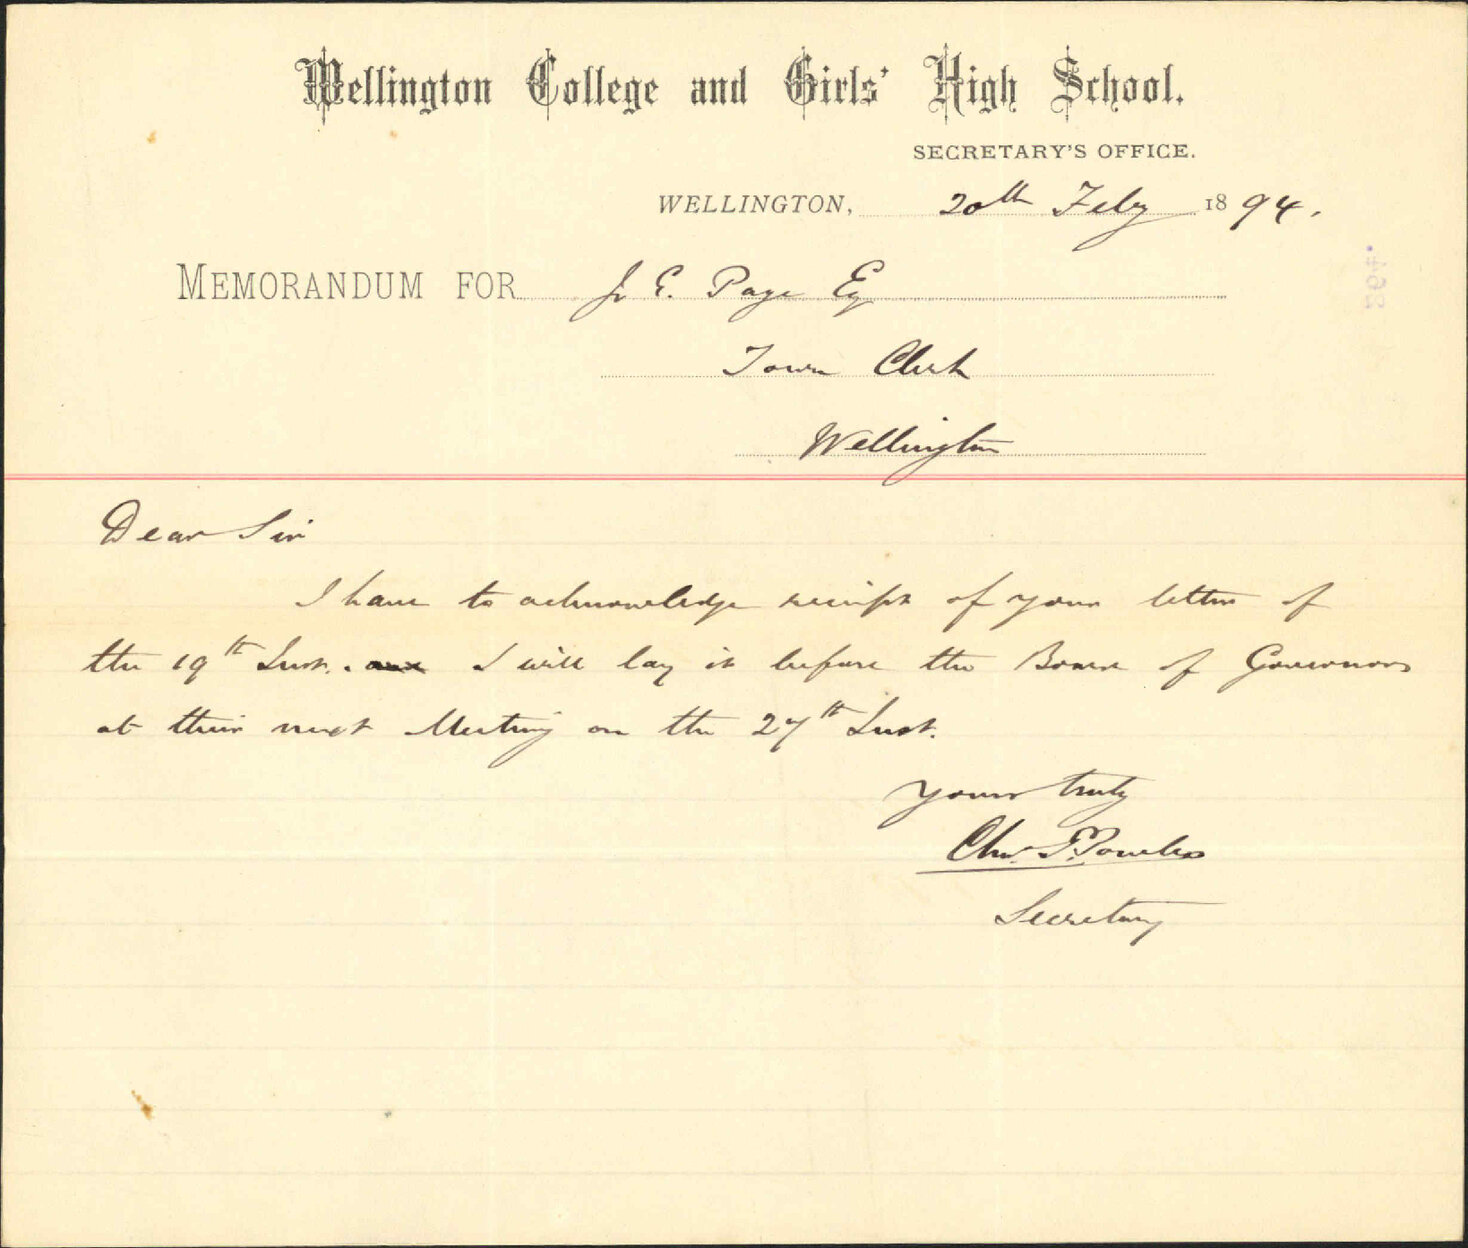 Wellington College and Girls' High School.
SECRETARY'S OFFICE.
WELLINGTON, 20th Feby 1894.
MEMORANDUM FOR J. E. Page Esq
Town Clerk
Wellington
Dear Sir
I have to acknowledge receipt of your letter of
the 19th Inst. I will lay it before the Board of Governors
at their next Meeting on the 27th Inst.
Yours truly
Chas. P. Powles
Secretary